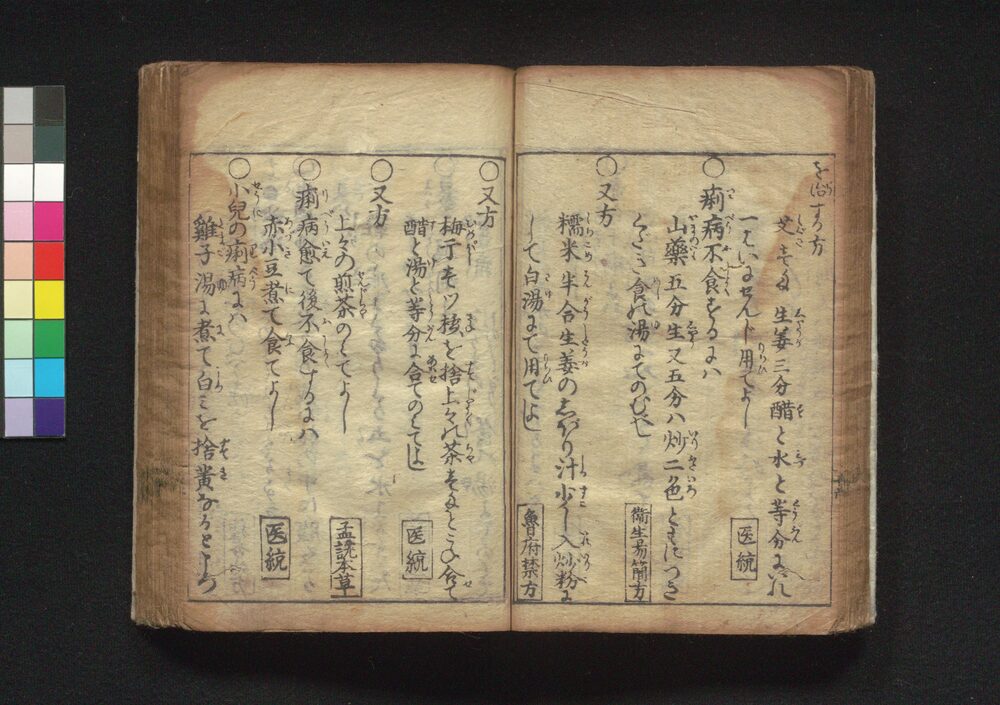 を治する方
艾 生姜三分醋と水と等分に入れ
一はいにせんじ用てよし
医統
○痢病不食をるには
山藥五分生又五分ハ炒二色ともにつき
食の湯にてのむべし
衛生易簡方
○又方
糯米半合生姜のしぼり汁少し入炒粉に
して白湯にて用てよし
魯府禁方
○又方
梅干 核を捨上々の茶 合て
醋と湯と等分に合てのみてよし
医統
○又方
上々の煎茶のみてよし
孟詵本草
○痢病愈て後不食するにハ
赤小豆煮て食てよし
医統
○小兒の痢病にハ
雞子湯に煮て白ミを捨黄なるところ